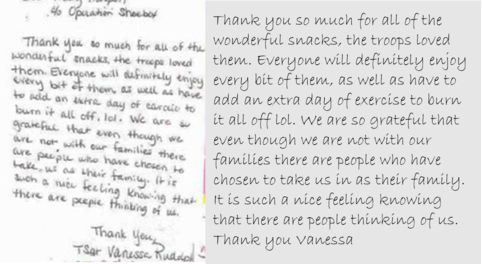 c/o Operation Shoebox
Thank you so much for all of the
wonderful snacks, the troops loved
them. Everyone will definitely enjoy
every bit of them, as well as have
to add an extra day of cardio to
burn it all off, lol. We are so
grateful that even though we
are not with our families there
are people who have chosen to
take us as their family. It is
such a nice feeling knowing that
there are people thinking of us.
Thank you,
TSgt Vanessa
Thank you so much for all of the
wonderful snacks, the troops loved
them. Everyone will definitely enjoy
every bit of them, as well as have to
add an extra day of exercise to burn
it all off lol. We are so grateful that
even though we are not with our
families there are people who have
chosen to take us in as their family.
It is such a nice feeling knowing
that there are people thinking of us.
Thank you Vanessa